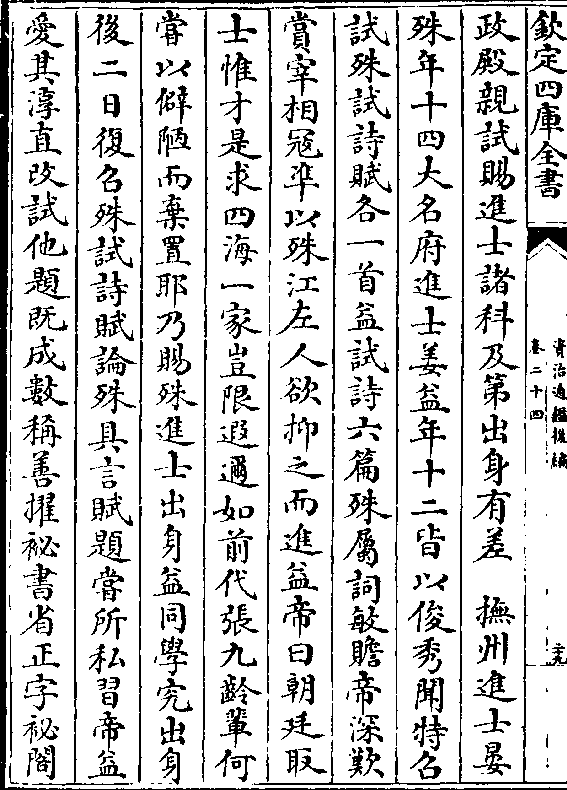 欽定四庫全書
資治通鑑後編
卷二十四
政殿親試賜進士諸科及第出身有差　撫州進士晏
殊年十四大名府進士姜益年十二皆以俊秀聞特召
試殊試詩賦各一首益試詩六篇殊屬詞敏贍帝深歎
賞宰相冦準以殊江左人欲抑之而進益帝曰朝廷取
士惟才是求四海一家豈限遐邇如前代張九齡輩何
嘗以僻陋而棄置耶乃賜殊進士出身益同學究出身
後二日復召殊試詩賦論殊具言賦題嘗所私習帝益
愛其淳直改試他題既成數稱善擢祕書省正字祕閣